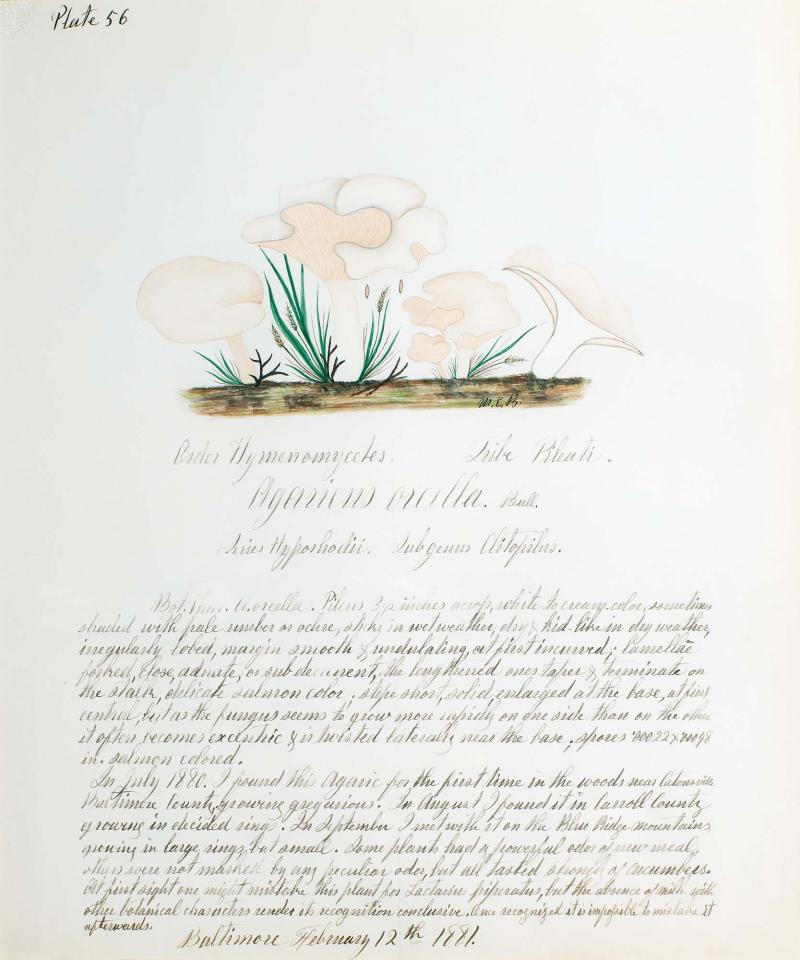 Plate 56
M.E.B.
Order Hymenomycetes. Tribe Pileati.
Agaricus orcella. Bull.
Series Hyporhodii. Subgenus Clitopilus.
Bot. Char. A. orcella. Pileus 3½ inches across, white to cream color, sometimes
shaded with pale umber or ochre, sticky in wet weather, dry & kid-like in dry weather,
irregularly lobed, margin smooth & undulating, at first incurved; lamellae
forked, close, adnate, or sub-decurrent, the lengthened ones taper & terminate on
the stalk, delicate salmon color; stipe short, solid, enlarged at the base, at first
central, but as the fungus seems to grow more rapidly on one side than on the other
it often becomes excentric & is twisted laterally near the base; spores
in. salmon colored.
In July 1880. I found this Agaric for the first time in the woods near Catonsville
Baltimore County, growing gregarious. In August I found it in Carroll County
growing in decided rings. In September I met with it on the Blue Ridge mountains,
growing in large rings, but small. Some plants had a powerful odor of new meal,
others were not marked by any peculiar odor, but all tasted strongly of cucumbers.
At first sight one might mistake this plant for Lactarius piperatus, but the absence of milk with
other botanical characters render its recognition conclusive. Once recognized it is impossible to mistake it
afterwards.
Baltimore February 12th 1881.